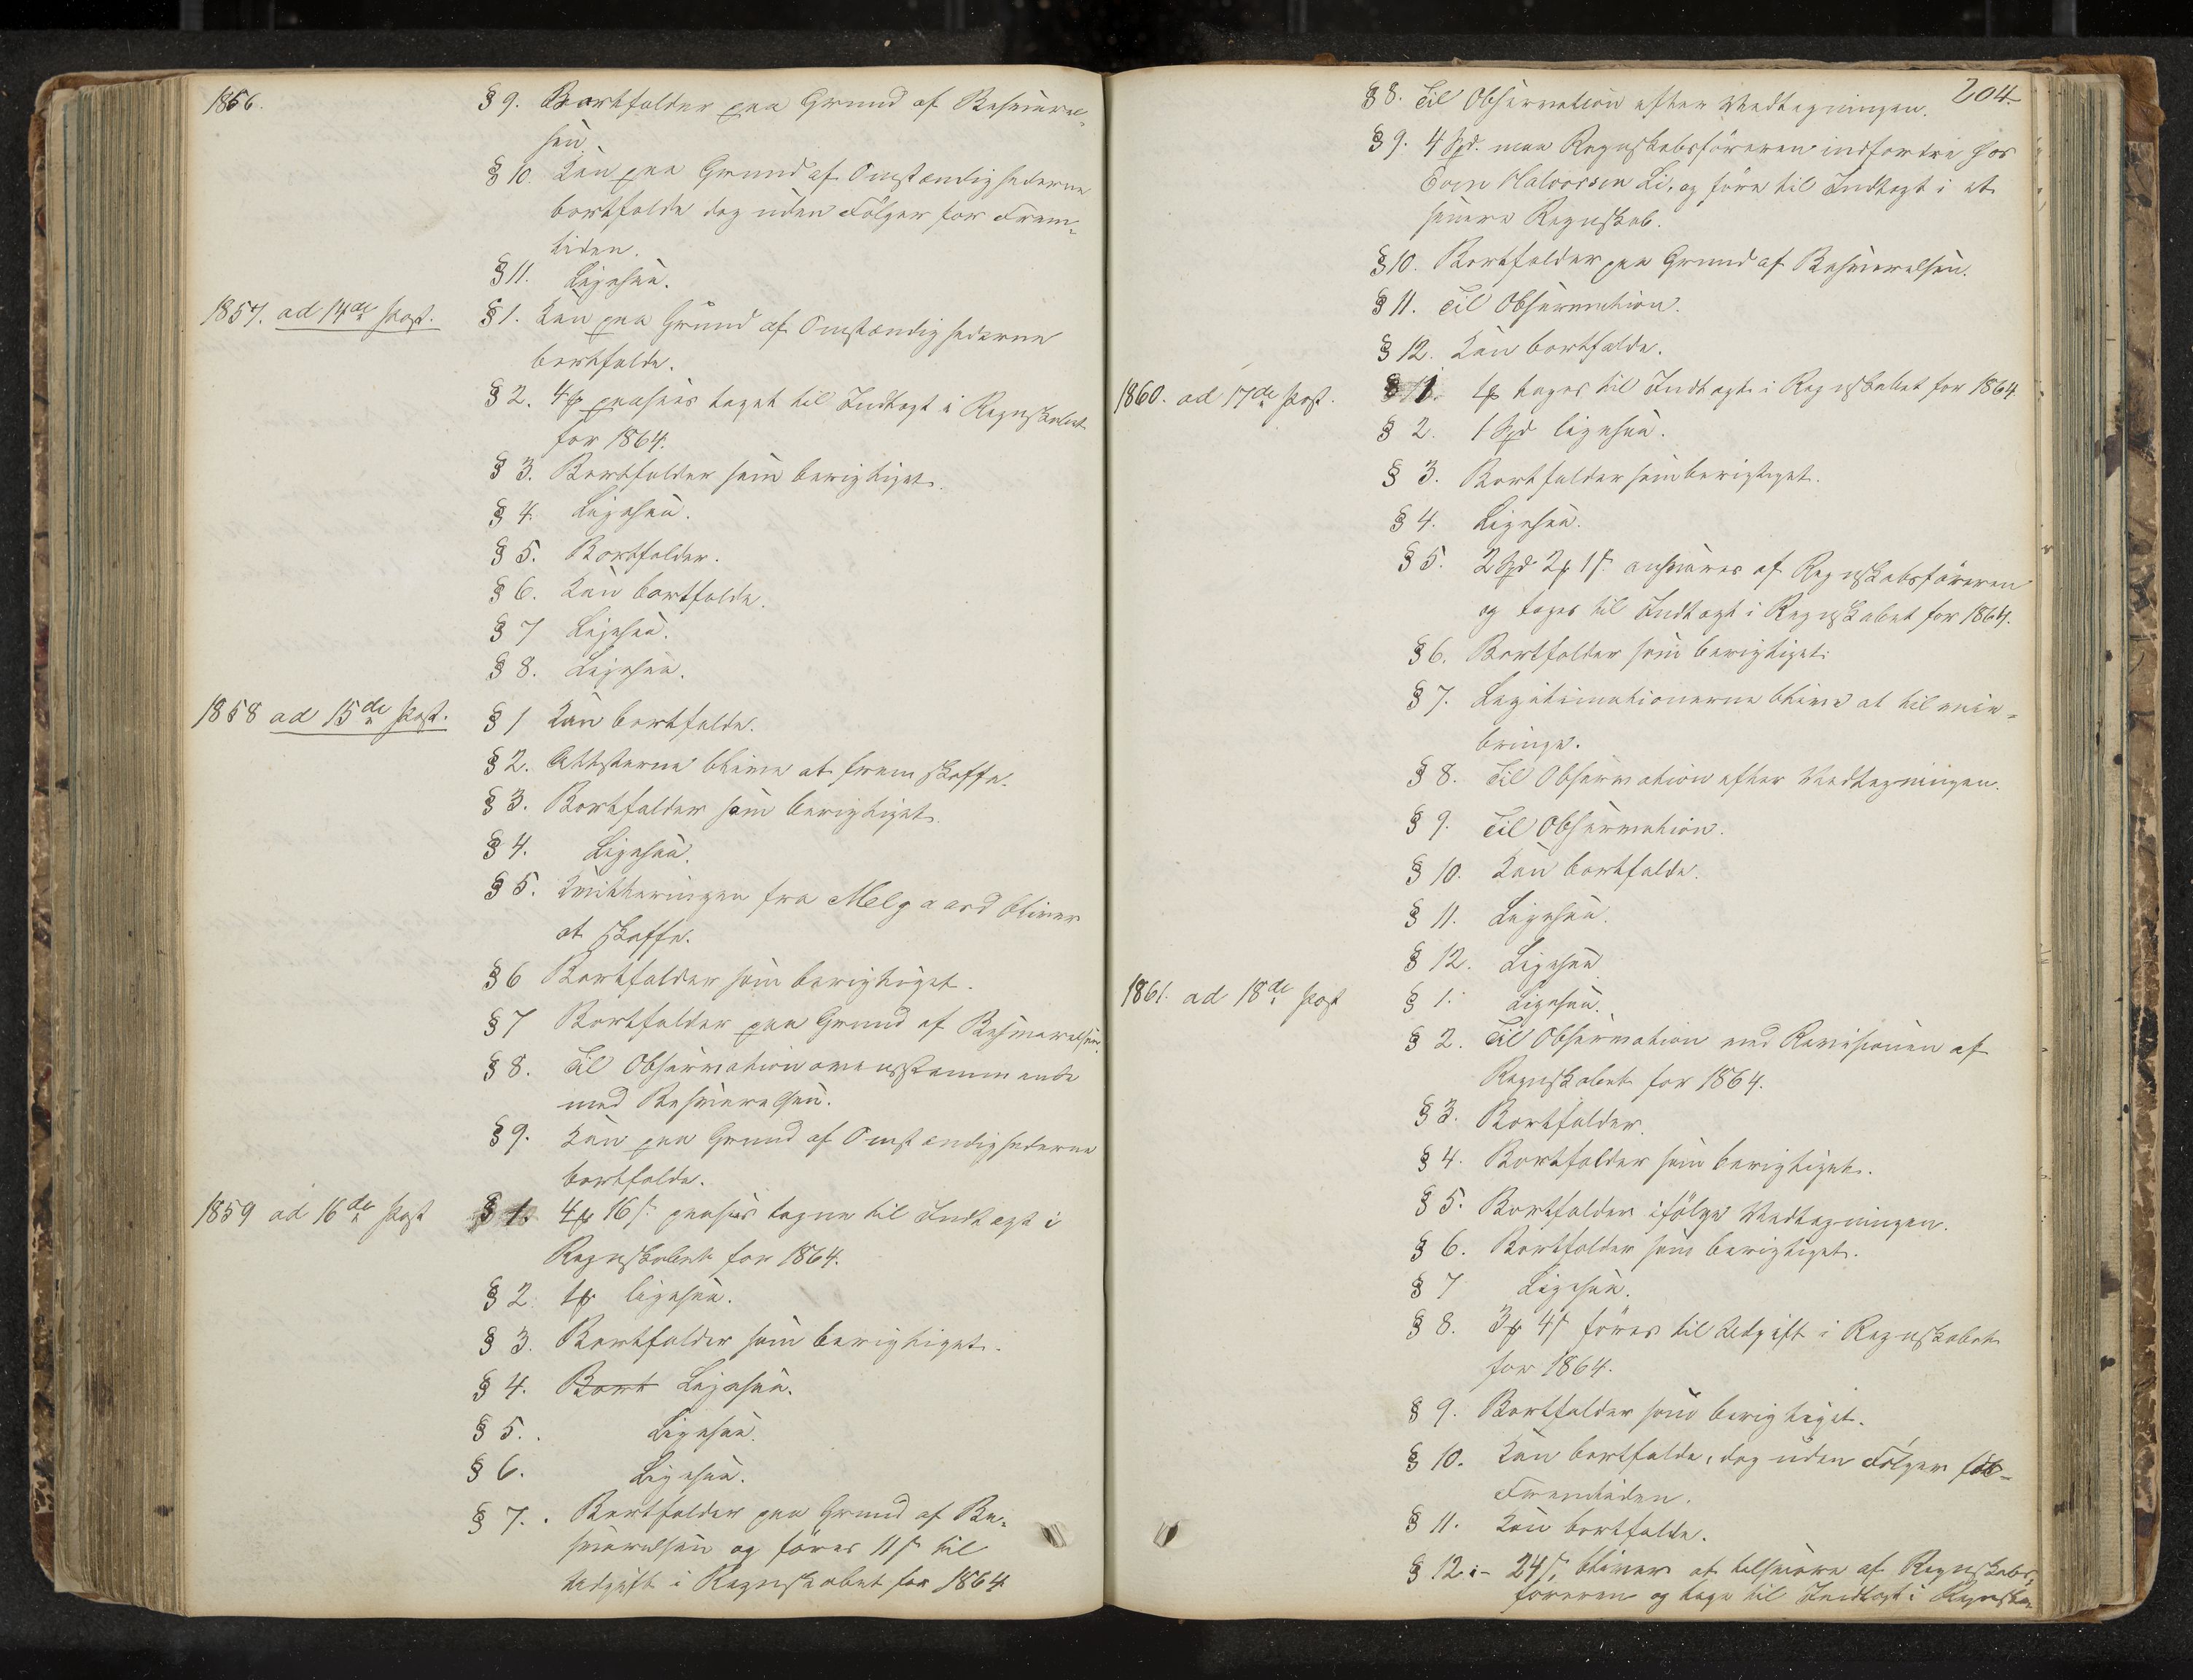 1856.
§ 9. Bortfalder paa Grund af Besvarel-
sen.
§ 10. Kan paa Grund af Omstændighederne
bortfalde dog uden Følger for Frem-
tiden.
§ 11. Ligesaa.
1857. ad 14de Post.
§ 1. Kan paa Grund af Omstændighederne
bortfalde.
§ 2. 4 ß paasees taget til Indtægt i Regnskabet
for 1864.
§ 3. Bortfalder som berigtiget.
§ 4. Ligesaa.
§ 5. Bortfalder.
§ 6. Kan bortfalde.
§ 7 Ligesaa.
§ 8. Ligesaa.
1858 ad 15de Post.
§ 1 Kan bortfalde.
§ 2. Attesterne bliver at fremskaffe.
§ 3. Bortfalder som berigtiget.
§ 4. Ligesaa.
§ 5. Kvitteringen fra Melgaard bliver
at skaffe.
§ 6 Bortfalder som berigtiget.
§ 7 Bortfalder paa Grund af Besvarelsen.
§ 8. Til Observation overensstemmende
med Besvarelsen.
§ 9. Kan paa Grund af Omstændighederne
bortfalde.
1859 ad 16de Post
§ 1. 4 ß 16 s. paasees tagne til Indtægt i
Regnskabet for 1864.
§ 2. 1 ß ligesaa.
§ 3. Bortfalder som berigtiget.
§ 4. Bort Ligesaa.
§ 5. Ligesaa.
§ 6. Ligesaa.
§ 7. Bortfalder paa Grund af Be-
svarelsen og føres 11 s. til
Udgift i Regnskabet for 1864
204.
§ 8. Til Observation efter Vedtegningen.
§ 9. 4 Spd. maa Regnskabsføreren indfordre hos
Even Halvorsen Li, og føre til Indtægt i et
senere Regnskab.
§ 10. Bortfalder paa Grund af Besvarelsen.
§ 11. Til Observation.
§ 12. Kan bortfalde.
1860. ad 17de Post.
§ 1. 1 ß tages til Indtægt i Regnskabet for 1864
§ 2. 1 Spd ligesaa.
§ 3. Bortfalder som berigtiget.
§ 4. Ligesaa.
§ 5. 2 Spd 2 ß 1 s. ansvares af Regnskabsføreren
og tages til Indtægt i Regnskabet for 1864.
§ 6. Bortfalder som berigtiget.
§ 7. Legitimationerne bliver at tilveie-
bringe.
§ 8. Til Observation efter Vedtegningen.
§ 9. Til Observation.
§ 10. Kan bortfalde.
§ 11. Ligesaa.
§ 12. Ligesaa
1861. ad 18de Post
§ 1. Ligesaa.
§ 2. Til Observation ved Revisionen af
Regnskabet for 1864.
§ 3. Bortfalder.
§ 4. Bortfalder som berigtiget.
§ 5. Bortfalder ifølge Vedtegningen.
§ 6. Bortfalder som berigtiget.
§ 7 Ligesaa.
§ 8. 3 ß 4 s føres til Udgift i Regnskabet
for 1864.
§ 9. Bortfalder som berigtiget.
§ 10. Kan bortfalde, dog uden Følger for
Fremtiden.
§ 11. Kan bortfalde.
§ 12 :- 24 s. bliver at tilsvare af Regnskabs-
føreren og tage til Indtægt i Regnska-